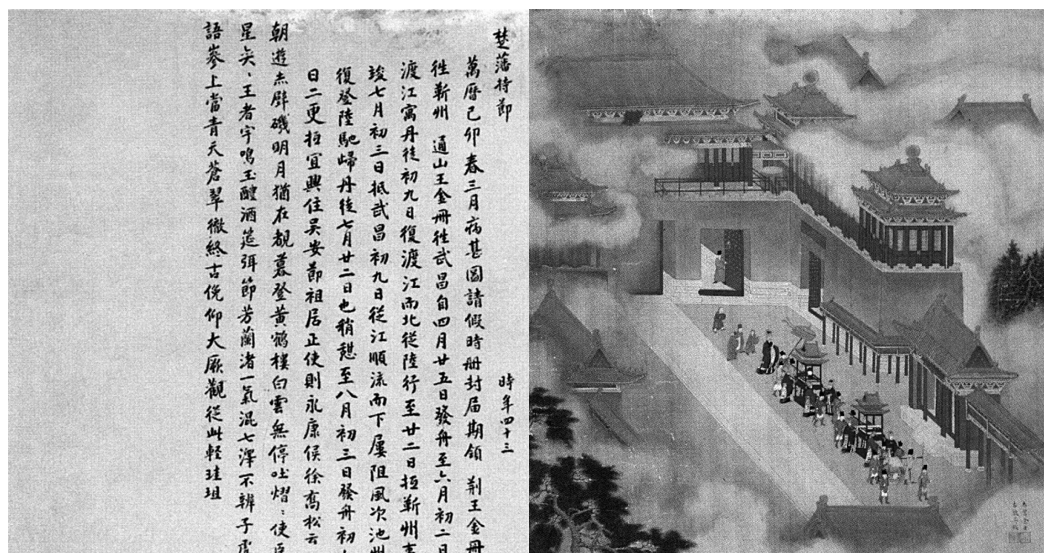 楚藩持節 時年四十三
萬曆己卯春三月病甚圖請假時冊封届期領 荊王金冊
往蘄州 通山王金冊往武昌自四月廿五日發舟至六月初二日
渡江寓丹徒初九日復渡江而北從陸行至廿二日抵蘄州
竣七月初三日抵武昌初九日從江順流而下屢阻風次池州
復登陸馳歸丹徒七月廿二日也稍憩至八月初三日發舟初
日二更抵宜興住吳安節祖居正使則永康侯徐喬松云
朝遊赤壁磯明月猶在覩暮登黃鶴樓白雲無停吐熠〻使臣
星奕〻王者宇鳴玉醴酒筵弭節芳蘭渚一氣混七澤不辨子虛
語峯上當青天蒼翠徹終古俛仰大厥觀從此輕珪組